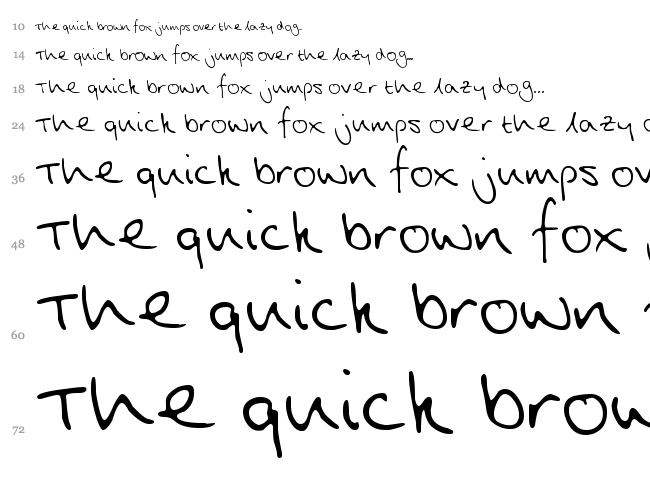 10 The quick brown fox jumps over the lazy dog...
14 The quick brown fox jumps over the lazy dog...
18 The quick brown fox jumps over the lazy dog...
24 The quick brown fox jumps over the lazy
36 The quick brown fox jumps ov
48 The quick brown fox
60 The quick brown
72 The quick brow